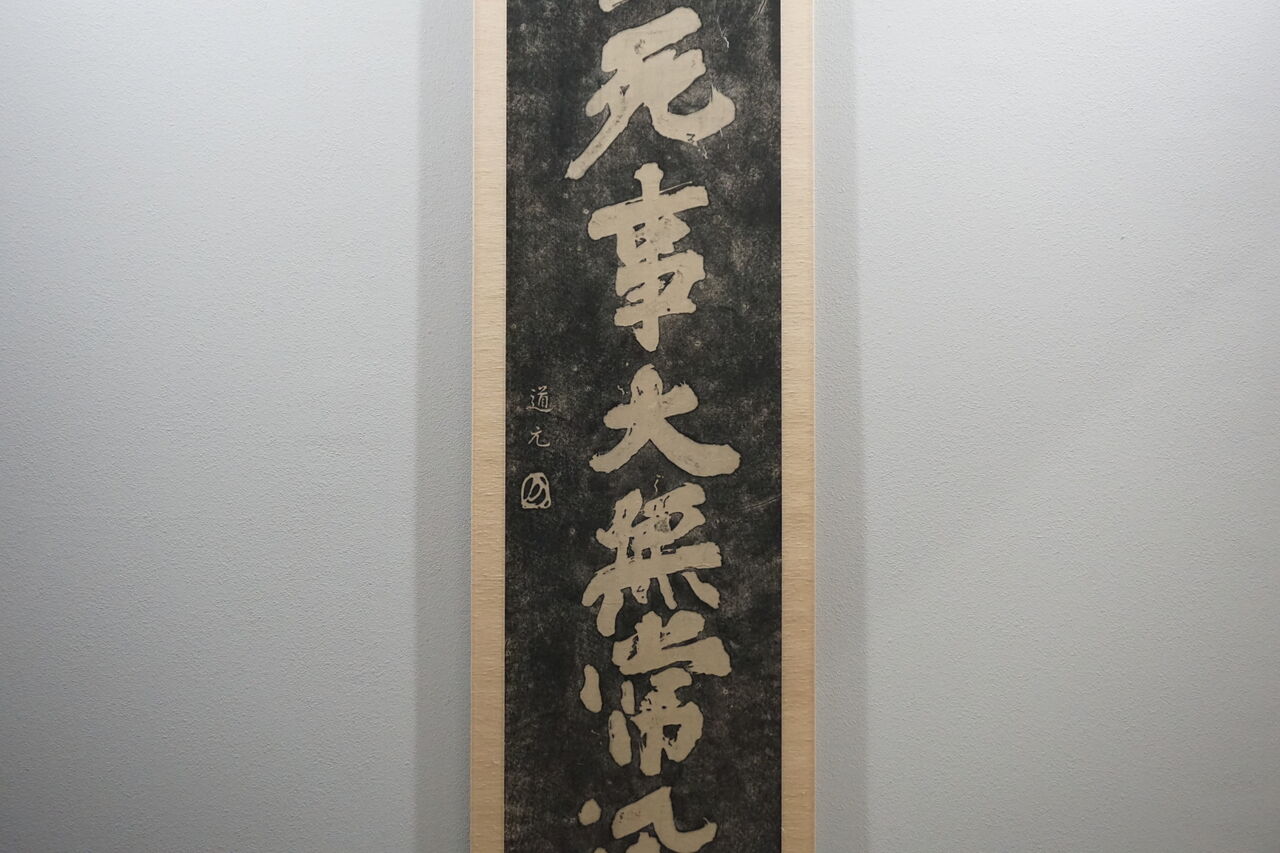 死事大無常
道元